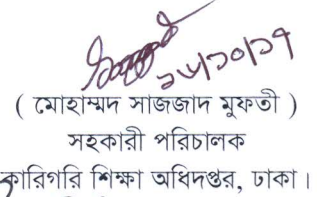 ১৮/১০/১৭
( মোহাম্মদ সাজজাদ মুফতী )
সহকারী পরিচালক
কারিগরি শিক্ষা অধিদপ্তর, ঢাকা।